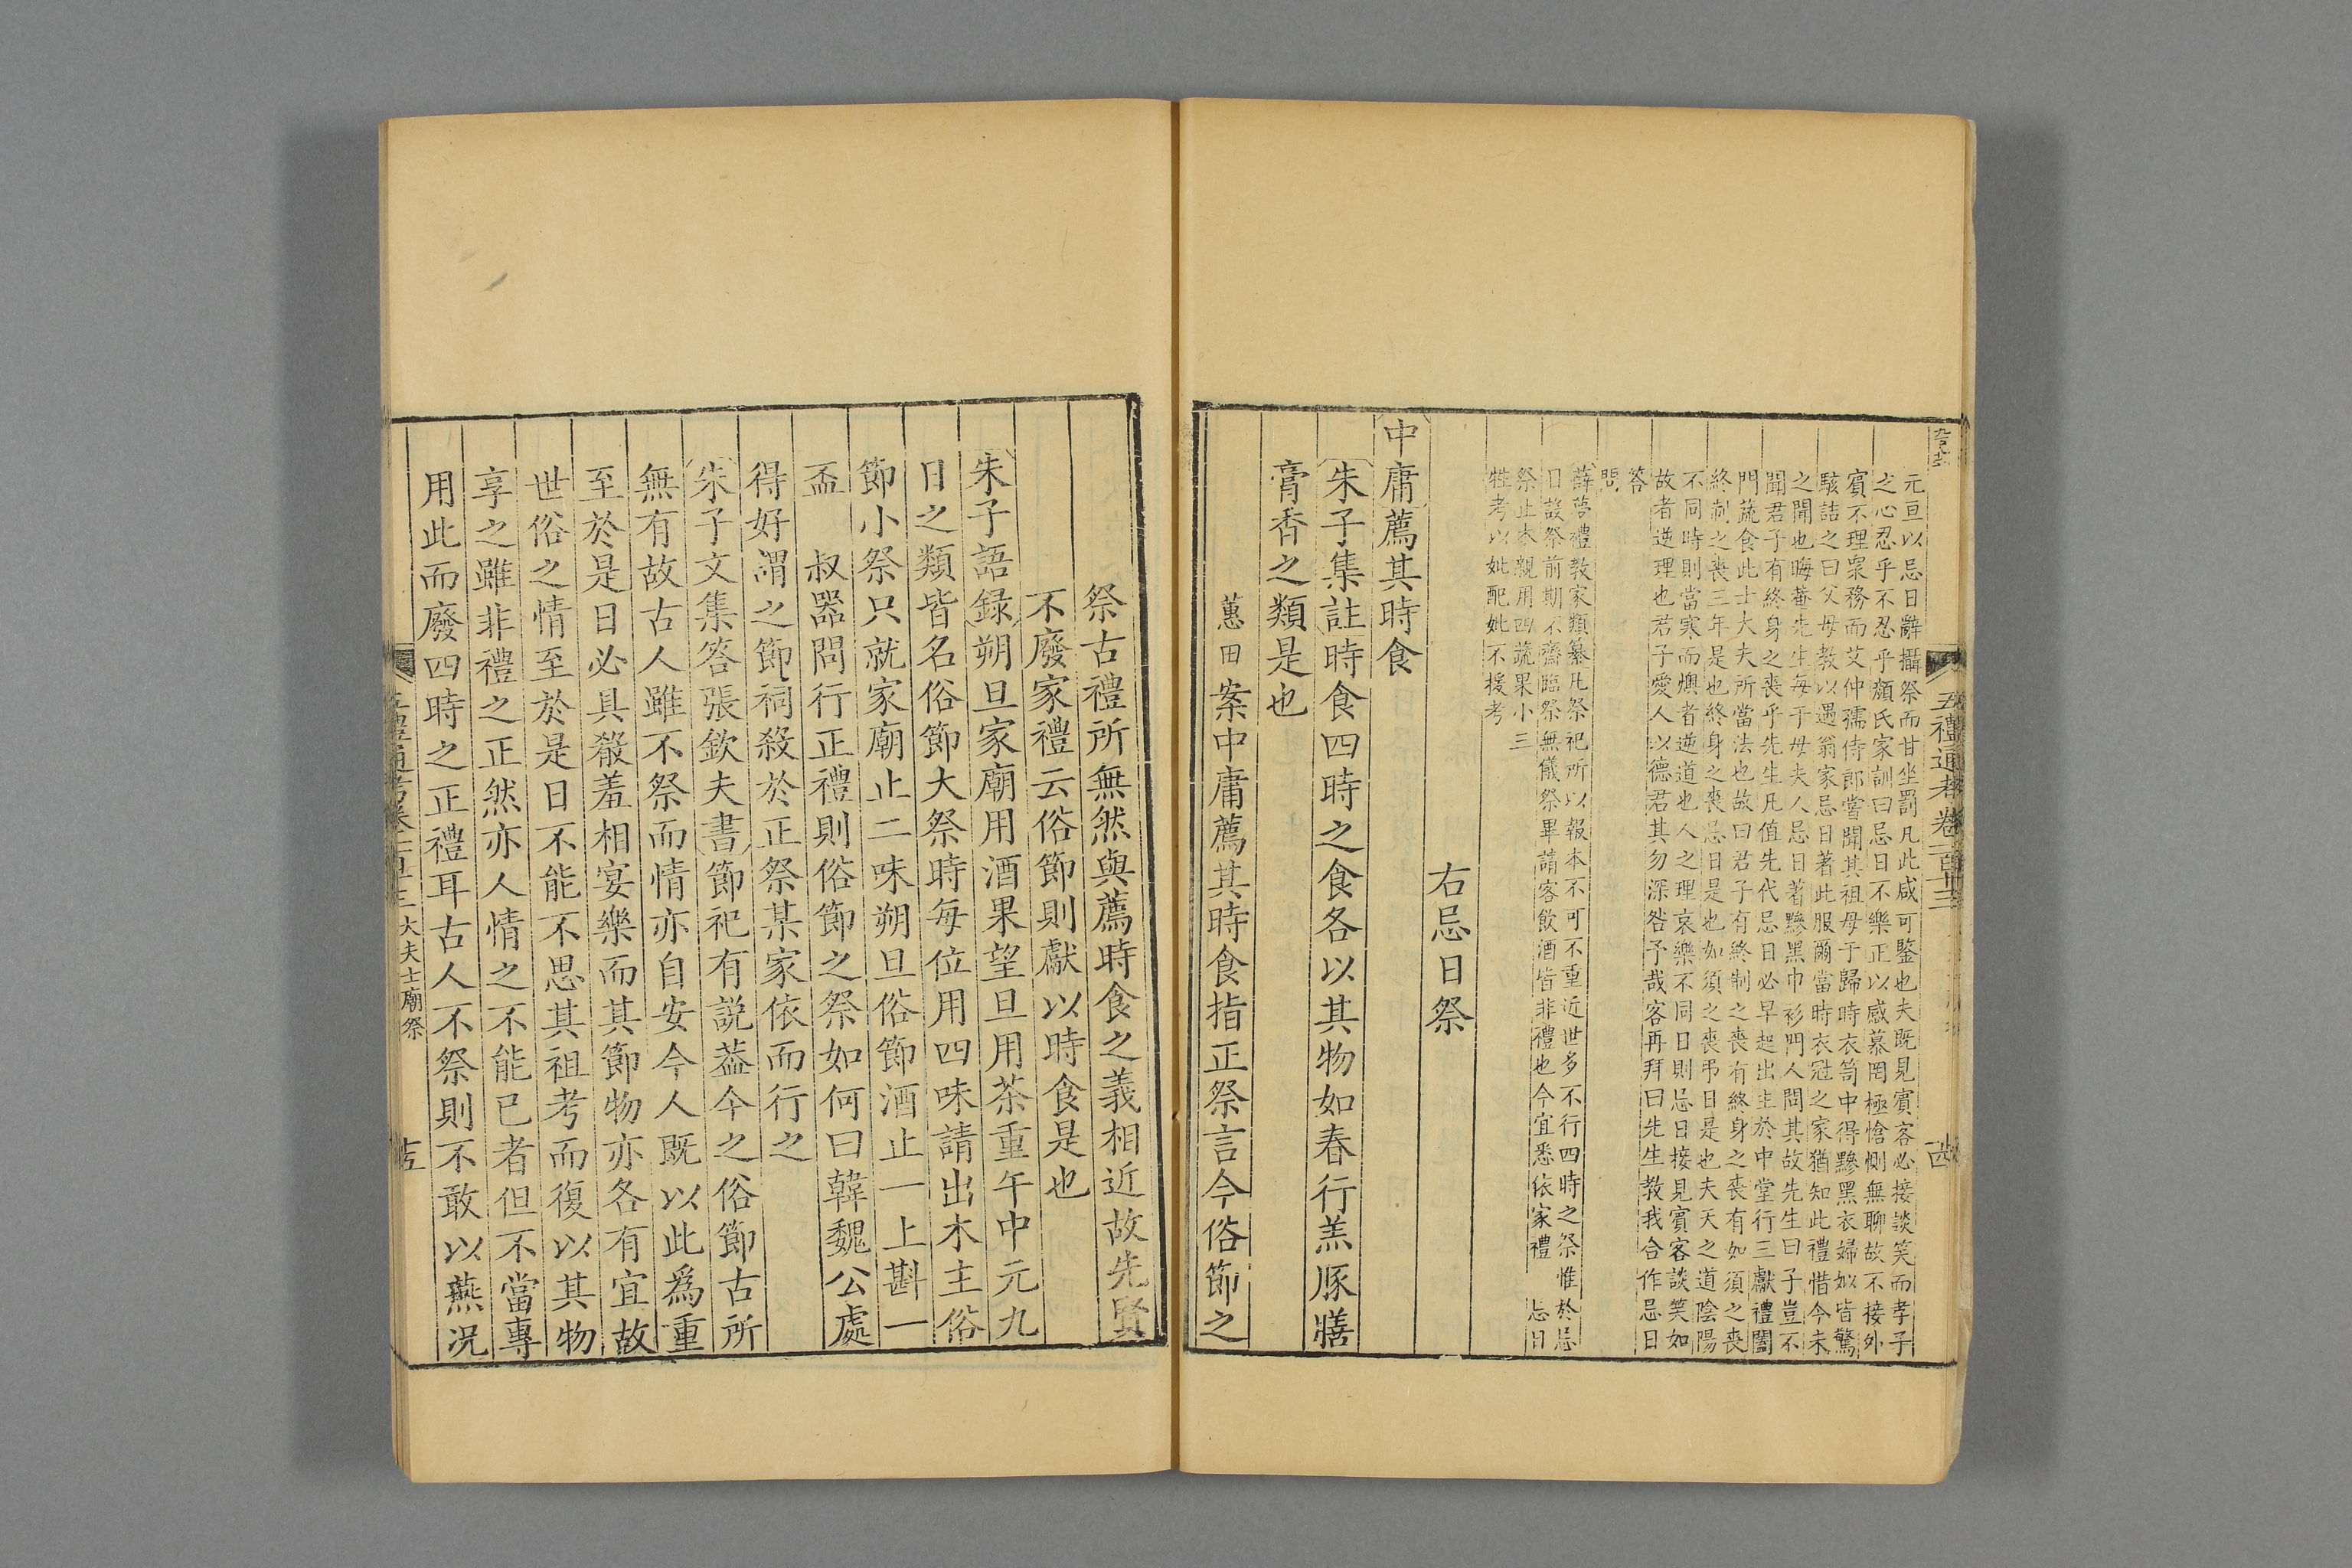 五禮通考卷一百十三
元亘以忌日辭攝祭而甘坐罰凡此咸可鑒也夫既見賓客必接談笑而孝子
之心忍乎不忍乎顏氏家訓曰忌日不樂正以感慕罔極愴惻無聊故不接外
賓不理衆務而艾仲孺侍郎嘗聞其祖母于歸時衣笥中得黲黑衣婦姒皆驚
駭詰之曰父母教以遇翁家忌日著此服爾當時衣冠之家猶知此禮惜今未
之聞也晦菴先生每于母夫人忌日著黲黑巾衫門人問其故先生曰子豈不
聞君子有終身之喪乎先生凡值先代忌日必早起出主於中堂行三獻禮闔
門蔬食此士大夫所當法也故曰君子有終制之喪有終身之喪有如須之喪
終制之喪三年是也終身之喪忌日是也如須之喪弔日是也夫天之道陰陽
不同時則當寒而燠者逆道也人之理哀樂不同日則忌日接見賓客談笑如
故者逆理也君子愛人以德君其勿深咎予哉客再拜曰先生教我合作忌日
答
問
薛夢禮教家類纂凡祭祀所以報本不可不重近世多不行四時之祭惟於忌
日設祭前期不齋臨祭無儀祭畢請客飲酒皆非禮也今宜悉依家禮 忌日
祭止本親用四蔬果小三
牲考以妣配妣不援考
右忌日祭
中庸薦其時食
朱子集註時食四時之食各以其物如春行羔豚膳
膏香之類是也
蕙田案中庸薦其時食指正祭言今俗節之
祭古禮所無然與薦時食之義相近故先賢
不廢家禮云俗節則獻以時食是也
朱子語録朔旦家廟用酒果望旦用茶重午中元九
日之類皆名俗節大祭時每位用四味請出木主俗
節小祭只就家廟止二味朔旦俗節酒止一上斟一
盃 叔器問行正禮則俗節之祭如何曰韓魏公處
得好謂之節祠殺於正祭某家依而行之
朱子文集答張欽夫書節祀有説葢今之俗節古所
無有故古人雖不祭而情亦自安今人既以此爲重
至於是日必具殽羞相宴樂而其節物亦各有宜故
世俗之情至於是日不能不思其祖考而復以其物
享之雖非禮之正然亦人情之不能已者但不當專
用此而廢四時之正禮耳古人不祭則不敢以燕況
大夫士廟祭